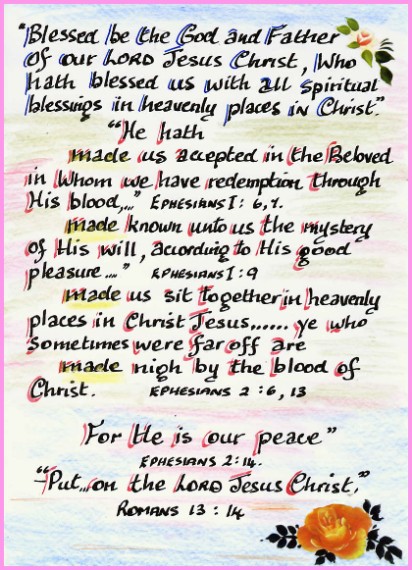 "Blessed be the God and Father
Of our LORD Jesus Christ, Who
hath blessed us with all spiritual
blessings in heavenly places in Christ."
"He hath
made us accepted in the Beloved
in Whom we have redemption through
His blood,..." EPHESIANS I: 6,7.
made known unto us the mystery
of His will, according to His good
pleasure...." EPHESIANS I: 9
made us sit together in heavenly
places in Christ Jesus...... ye who
sometimes were far off are
made nigh by the blood of
Christ. EPHESIANS 2:6, 13
For He is our peace"
EPHESIANS 2:14.
"Put...on the LORD Jesus Christ."
ROMANS 13:14